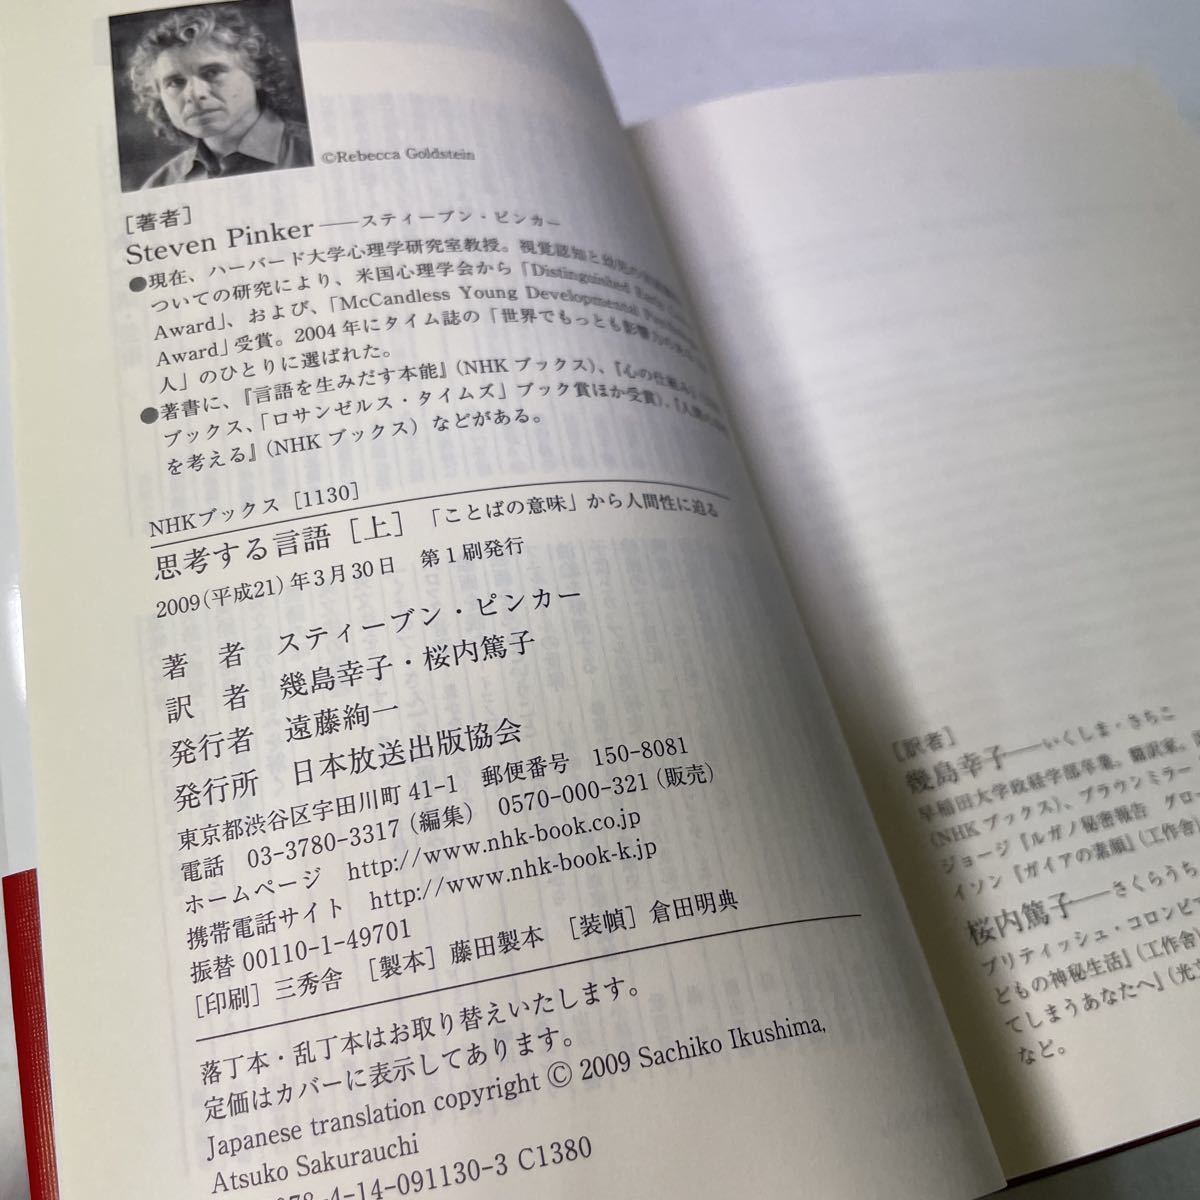 ©Rebecca Goldstein
[著者]
Steven Pinker——スティーブン・ピンカー
●現在、ハーバード大学心理学研究室教授。視覚認知と幼児の
ついての研究により、米国心理学会から「Distinguished Early
Award」、および、「McCandless Young Developmental
Award」受賞。2004年にタイム誌の「世界でもっとも影響力の
人」のひとりに選ばれた。
●著書に、『言語を生みだす本能』(NHKブックス)、『心の仕組み』
ブックス、「ロサンゼルス・タイムズ」ブック賞ほか受賞)、『人間の
を考える』(NHKブックス)などがある。
NHKブックス [1130]
思考する言語[上] 「ことばの意味」から人間性に迫る
2009(平成21)年3月30日 第1刷発行
著者 スティーブン・ピンカー
訳者 幾島幸子・桜内篤子
発行者 遠藤絢一
発行所 日本放送出版協会
東京都渋谷区宇田川町41-1 郵便番号 150-8081
電話 03-3780-3317(編集) 0570-000-321(販売)
ホームページ http://www.nhk-book.co.jp
携帯電話サイト http://www.nhk-book-k.jp
振替 00110-1-49701
[印刷]三秀舎 [製本]藤田製本 [装幀]倉田明典
落丁本・乱丁本はお取り替えいたします。
定価はカバーに表示してあります。
Japanese translation copyright © 2009 Sachiko Ikushima,
Atsuko Sakurauchi
978-4-14-091130-3 C1380
[訳者]
幾島幸子——いくしま・さちこ
早稲田大学政経学部卒業。翻訳家。
(NHKブックス)、ブラウンミラー
ジョージ『ルガノ秘密報告 グロー
イソン『ガイアの素顔』(工作舎)
桜内篤子——さくらうち
ブリティッシュ・コロンビ
どもの神秘生活』(工作舎)
てしまうあなたへ』(光
など。